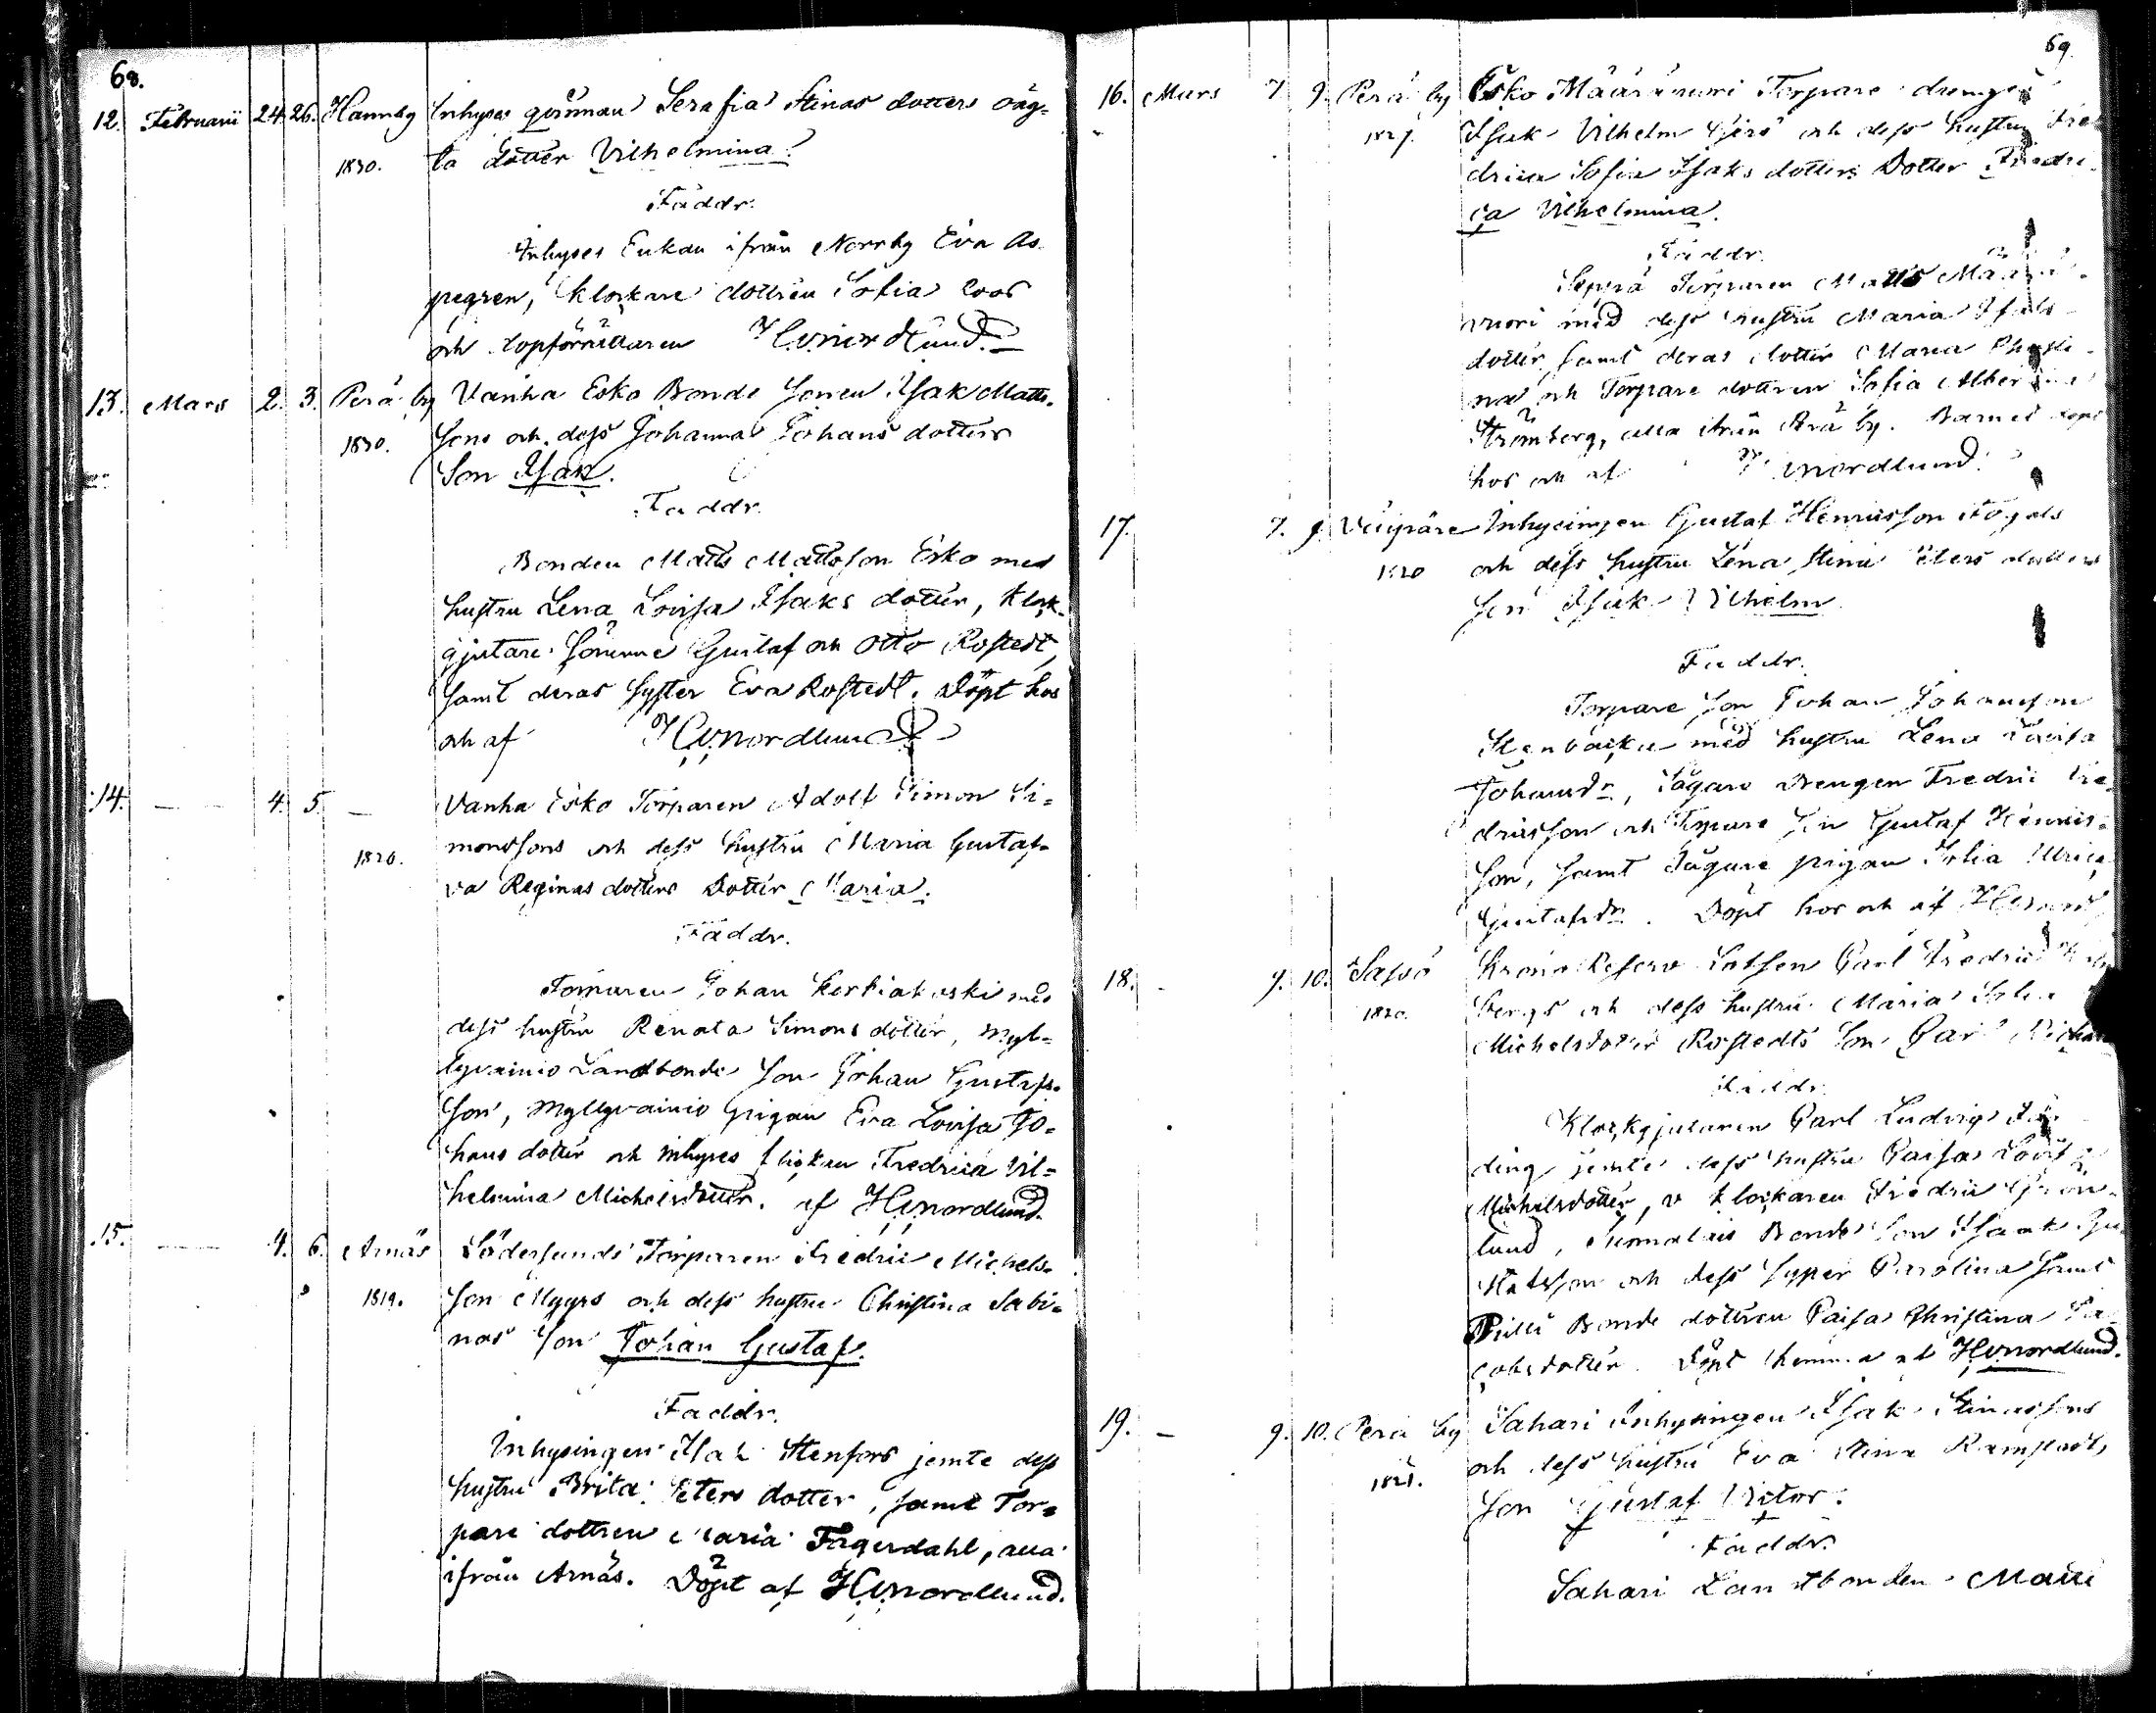 68.
12. Februarii 24. 26. Hannby Inhyses qvinnan Serafia Stinas dotters oäg-
1830. ta dotter Vilhelmina.
Faddr.
Inhyses Enkan ifrån Norrby Eva As-
pegren, Klockare dottren Sofia Roos
och Dopförrättaren HWnordlund.
13. Mars 2. 3. Perä by Vanha Esko Bonde Sonen Isak Matts-
1830. Sons och dess Johanna Johans dotters
Son Isak.
Faddr.
Bonden Matts Mattsson Esko med
hustru Lena Lovisa Isaks dotter, Klock-
gjutare Sönerne Gustaf och Otto Rostedt,
samt deras syster Eva Rostedt. Döpt hos
och af HWnordlund
14. — 4. 5. — Vanha Esko Torparen Adolf Simon Si-
1820. monssons och dess hustru Maria Gustaf-
va Reginas dotters Dotter Maria.
Faddr.
Torparen Johan Kerkiakoski med
dess hustru Renata Simons dotter, Myl-
lyvainio Landbonde Son Johan Gustafs-
son, Myllyvainio Pigan Eva Lovisa Jo-
hans dotter och Inhyses flickan Fredrica Vil-
helmina Michelsdotter. af HWnordlund.
15. — 4. 6. Arnäs Södersunds Torparen Fredric Michels-
1819. Son Myyrs och dess hustru Christina Sabi-
nas Son Johan Gustaf.
Faddr.
Inhysingen Isak Stenfors jemte dess
hustru Brita Peters dotter, samt Tor-
pare dottren Maria Fagerdahl, alla
ifrån Arnäs. Döpt af HWnordlund.
69.
16. Mars 7. 9. Perä by Esko Määränvuori Torpare drengen
1827. Isak Vilhelm och dess hustru Fre-
drica Sofia Isaks dotters Dotter Fredri-
ca Vilhelmina.
Faddr.
Seperä Torparen Matts Määrän-
vuori med dess hustru Maria Isaks
dotter, samt deras dotter Maria Christi-
na och Torpare dottren Sofia Albertina
Strömberg, alla ifrån Perä by. Barnet döpt
hos och af HWnordlund.
17. 7. 9. Inhysingen Gustaf Henricsson
1820 och dess hustru Lena Stina Peters dotters
Son Isak Vilhelm.
Faddr.
Torpare Son Johan Johansson
Stenbacka med hustru Lena Lovisa
Johansdr, Sågare Drengen Fredric Fre-
dricsson och Torpare Son Gustaf Henrics-
son, samt Sågare pigan Sofia Ulrica
Gustafsdr. Döpt hos och af HWnord
18. - 9. 10. Sassi Krono Reserv Lotsen Carl Fredric
1820. bergs och dess hustru Maria
Michelsdotter Rostedts Son Carl Richard
Faddr.
Klockgjutaren Carl Ludvig
ding jemte dess hustru Caisa Lovisa
Michelsdotter, v. klockaren Fredric Grön-
lund, Suomalais Bonde Son Isaak Gu-
stafsson och dess syster Carolina samt
Pulli Bonde dottren Caisa Christina Ja-
cobsdotter. Döpt hemma af HWnordlund.
19. — 9. 10. Perä by Sahari Inhysingen Isak Stinassons
1821. och dess hustru Eva Stina Ramstedts
Son Gustaf Victor.
Faddr.
Sahari Landbonden Matts